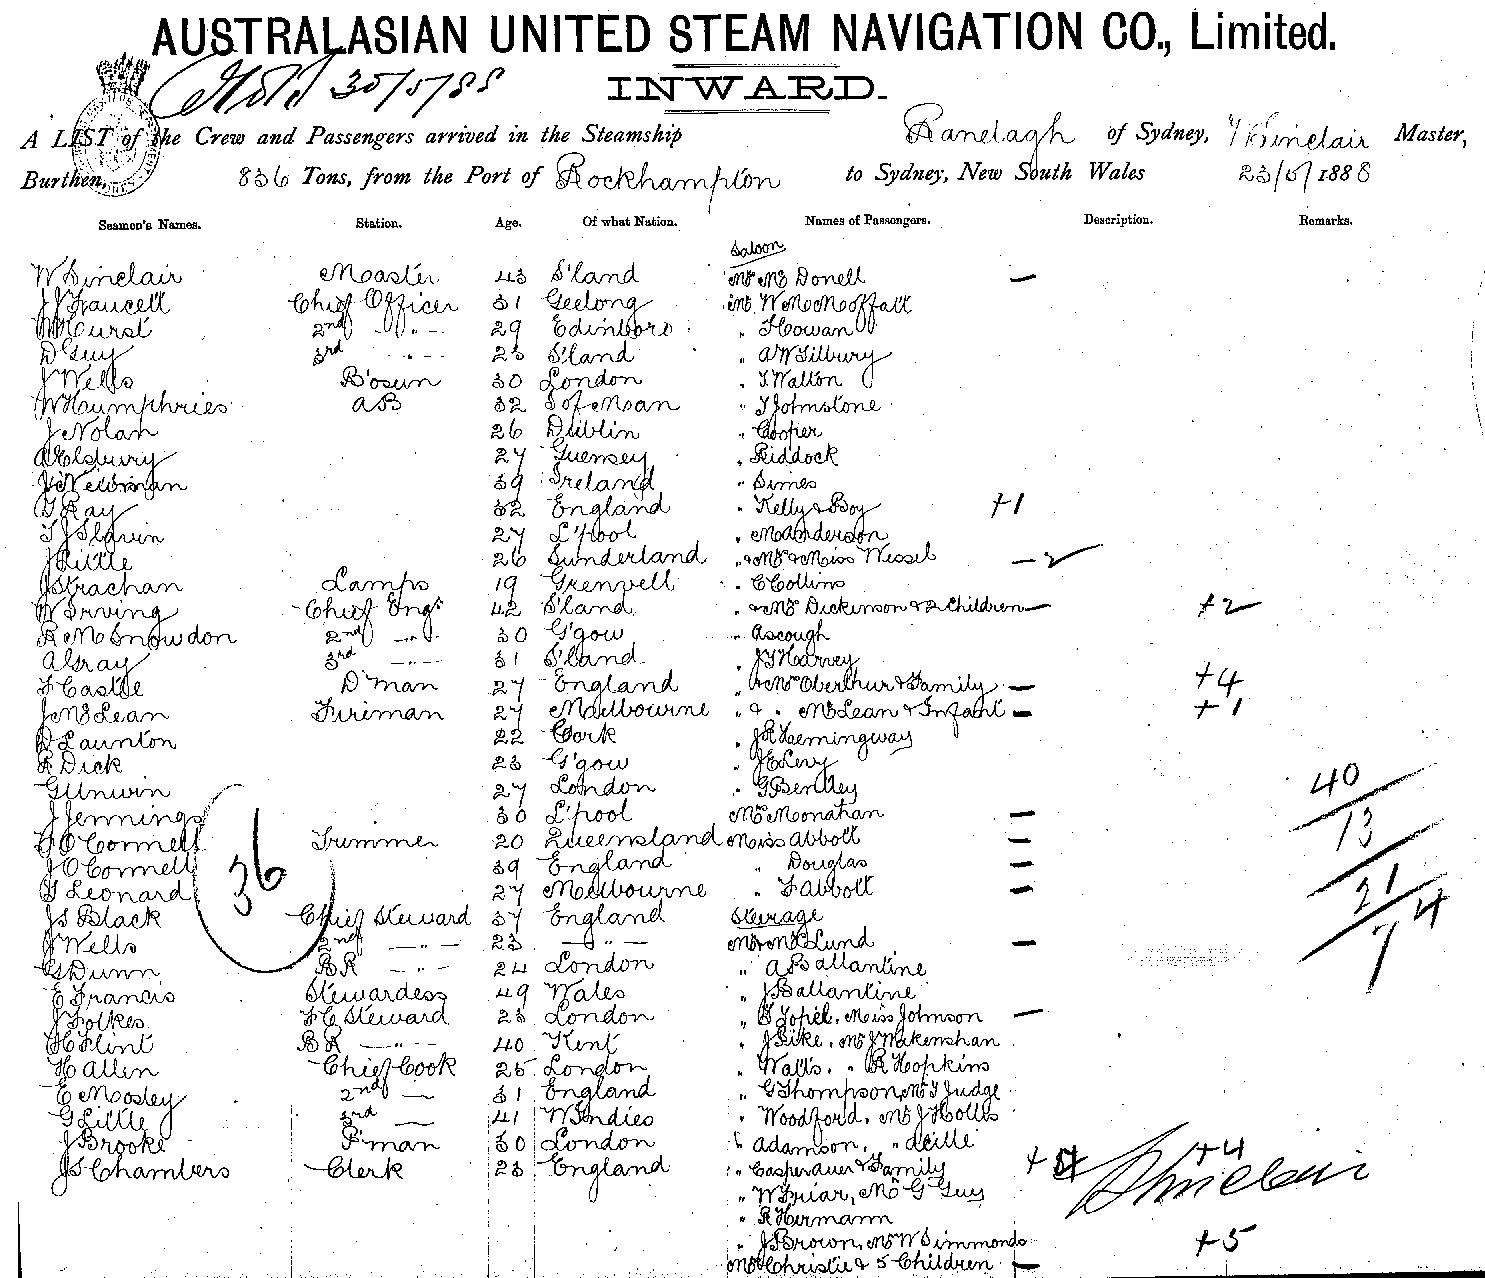 AUSTRALASIAN UNITED STEAM NAVIGATION CO., Limited.
30/5/88 INWARD.
A LIST of the Crew and Passengers arrived in the Steamship Ranelagh of Sydney, Sinclair Master,
Burthen, 836 Tons, from the Port of Rockhampton to Sydney, New South Wales 23/5/1888
Seamen's Names. Station. Age. Of what Nation. Names of Passengers. Description. Remarks.
Saloon
W Sinclair Master 43 S'land Mr Mc Donell —
J Faucett Chief Officer 31 Geelong Mr W McMoffatt
W Hurst 2nd -"- 29 Edinboro " Howan
D Guy 3rd -"- 23 S'land " A W Tilbury
J Wells B'osun 30 London " T Walton
W Humphries AB 32 I of Moan " T Johnstone
J Nolan 26 Dublin " Cooper
A Elsbury 27 Guernsey " Riddock
J Newman 39 Ireland " Simes
G Ray 32 England " Kelly & Boy +1
T J Slavin 27 L'pool " M Anderson
J Little 26 Sunderland " & Mrs & Miss Wessel — 2
J Strachan Lamps 19 Grenvell " C Collins
W Irving Chief Engr 42 S'land " & Mrs Dickinson & 2 Children — +2
R McSnowdon 2nd -"- 30 G'gow " Ascough
A Gray 3rd -"- 31 S'land " J T Harvey
F Castle D'man 27 England " & Mrs Oberthur & Family — +4
J McLean Fireman 27 Melbourne " & " McLean & Infant — +1
D Launton 22 Cork " J R Hemingway
R Dick 23 G'gow " J E Levy
G Unwin 27 London " G Bentley 40
J Jennings 30 L'pool Mrs Monahan — 13
O'Connell Trimmer 20 Queensland Miss Abbott —
J O'Connell 36 39 England " Douglas — 21
G Leonard 27 Melbourne " F Abbott — 4
J S Black Chief Steward 37 England Steerage 7
J Wells 2nd -"- 23 -"- Mr & Mrs Lund —
G Dunn BR -"- 24 London " A Ballantine
E Francis Stewardess 49 Wales " J Ballantine
J Folkes F C Steward 23 London " Topel. Miss Johnson —
H Flint BR -"- 40 Kent " J Pike. Mr J Makenshan
H Allen Chief Cook 25 London " Watts. " R Hopkins
E Mosley 2nd — 31 England " G Thompson, Mr T Judge
G Little 3rd — 41 W Indies " Woodford. Mr J Hollis
J Brooke P'man 30 London " Adamson.
J S Chambers Clerk 23 England " Casperauer & Family +4 +4
" W Friar, Mr G Guy Sinclair
" R Hermann
" J Brown, Mr W Simmonds +5
Mrs Christie & 5 Children —